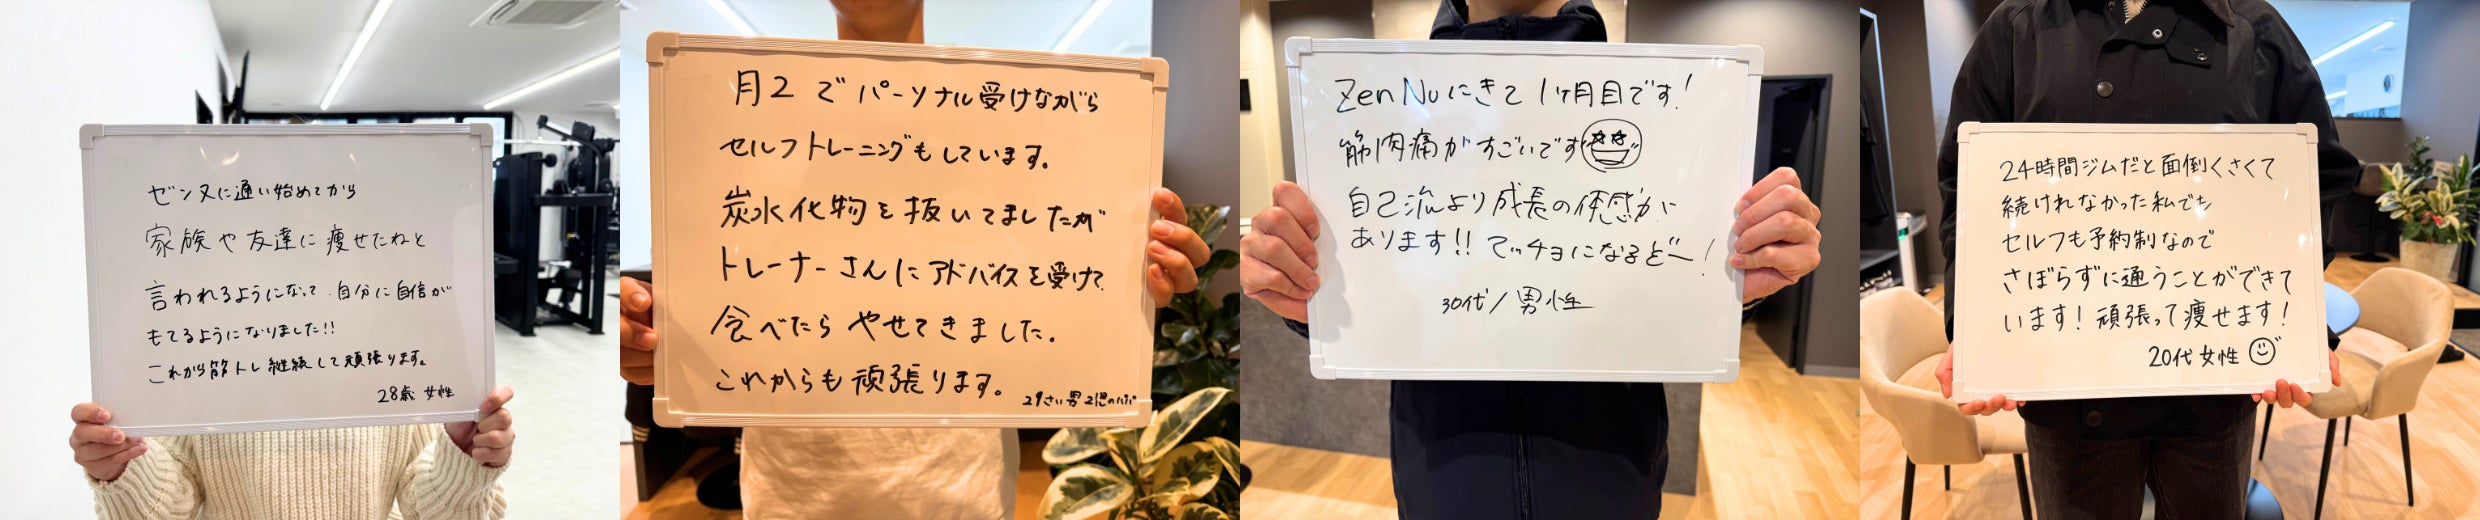 ゼンヌに通い始めてから
家族や友達に痩せたねと
言われるようになって、自分に自信が
もてるようになりました!!
これから筋トレ継続して頑張ります。
28歳 女性
月2でパーソナル受けながら
セルフトレーニングもしています。
炭水化物を抜いてましたが
トレーナーさんにアドバイスを受けて
食べたらやせてきました。
これからも頑張ります。
29さい男 2児のパパ
Zen Nuにきて1ヶ月目です!
筋肉痛がすごいです
自己流より成長の体感が
あります!! マッチョになるぞー!
30代/男性
24時間ジムだと面倒くさくて
続けれなかった私でも
セルフも予約制なので
さぼらずに通うことができて
います!頑張って痩せます!
20代 女性